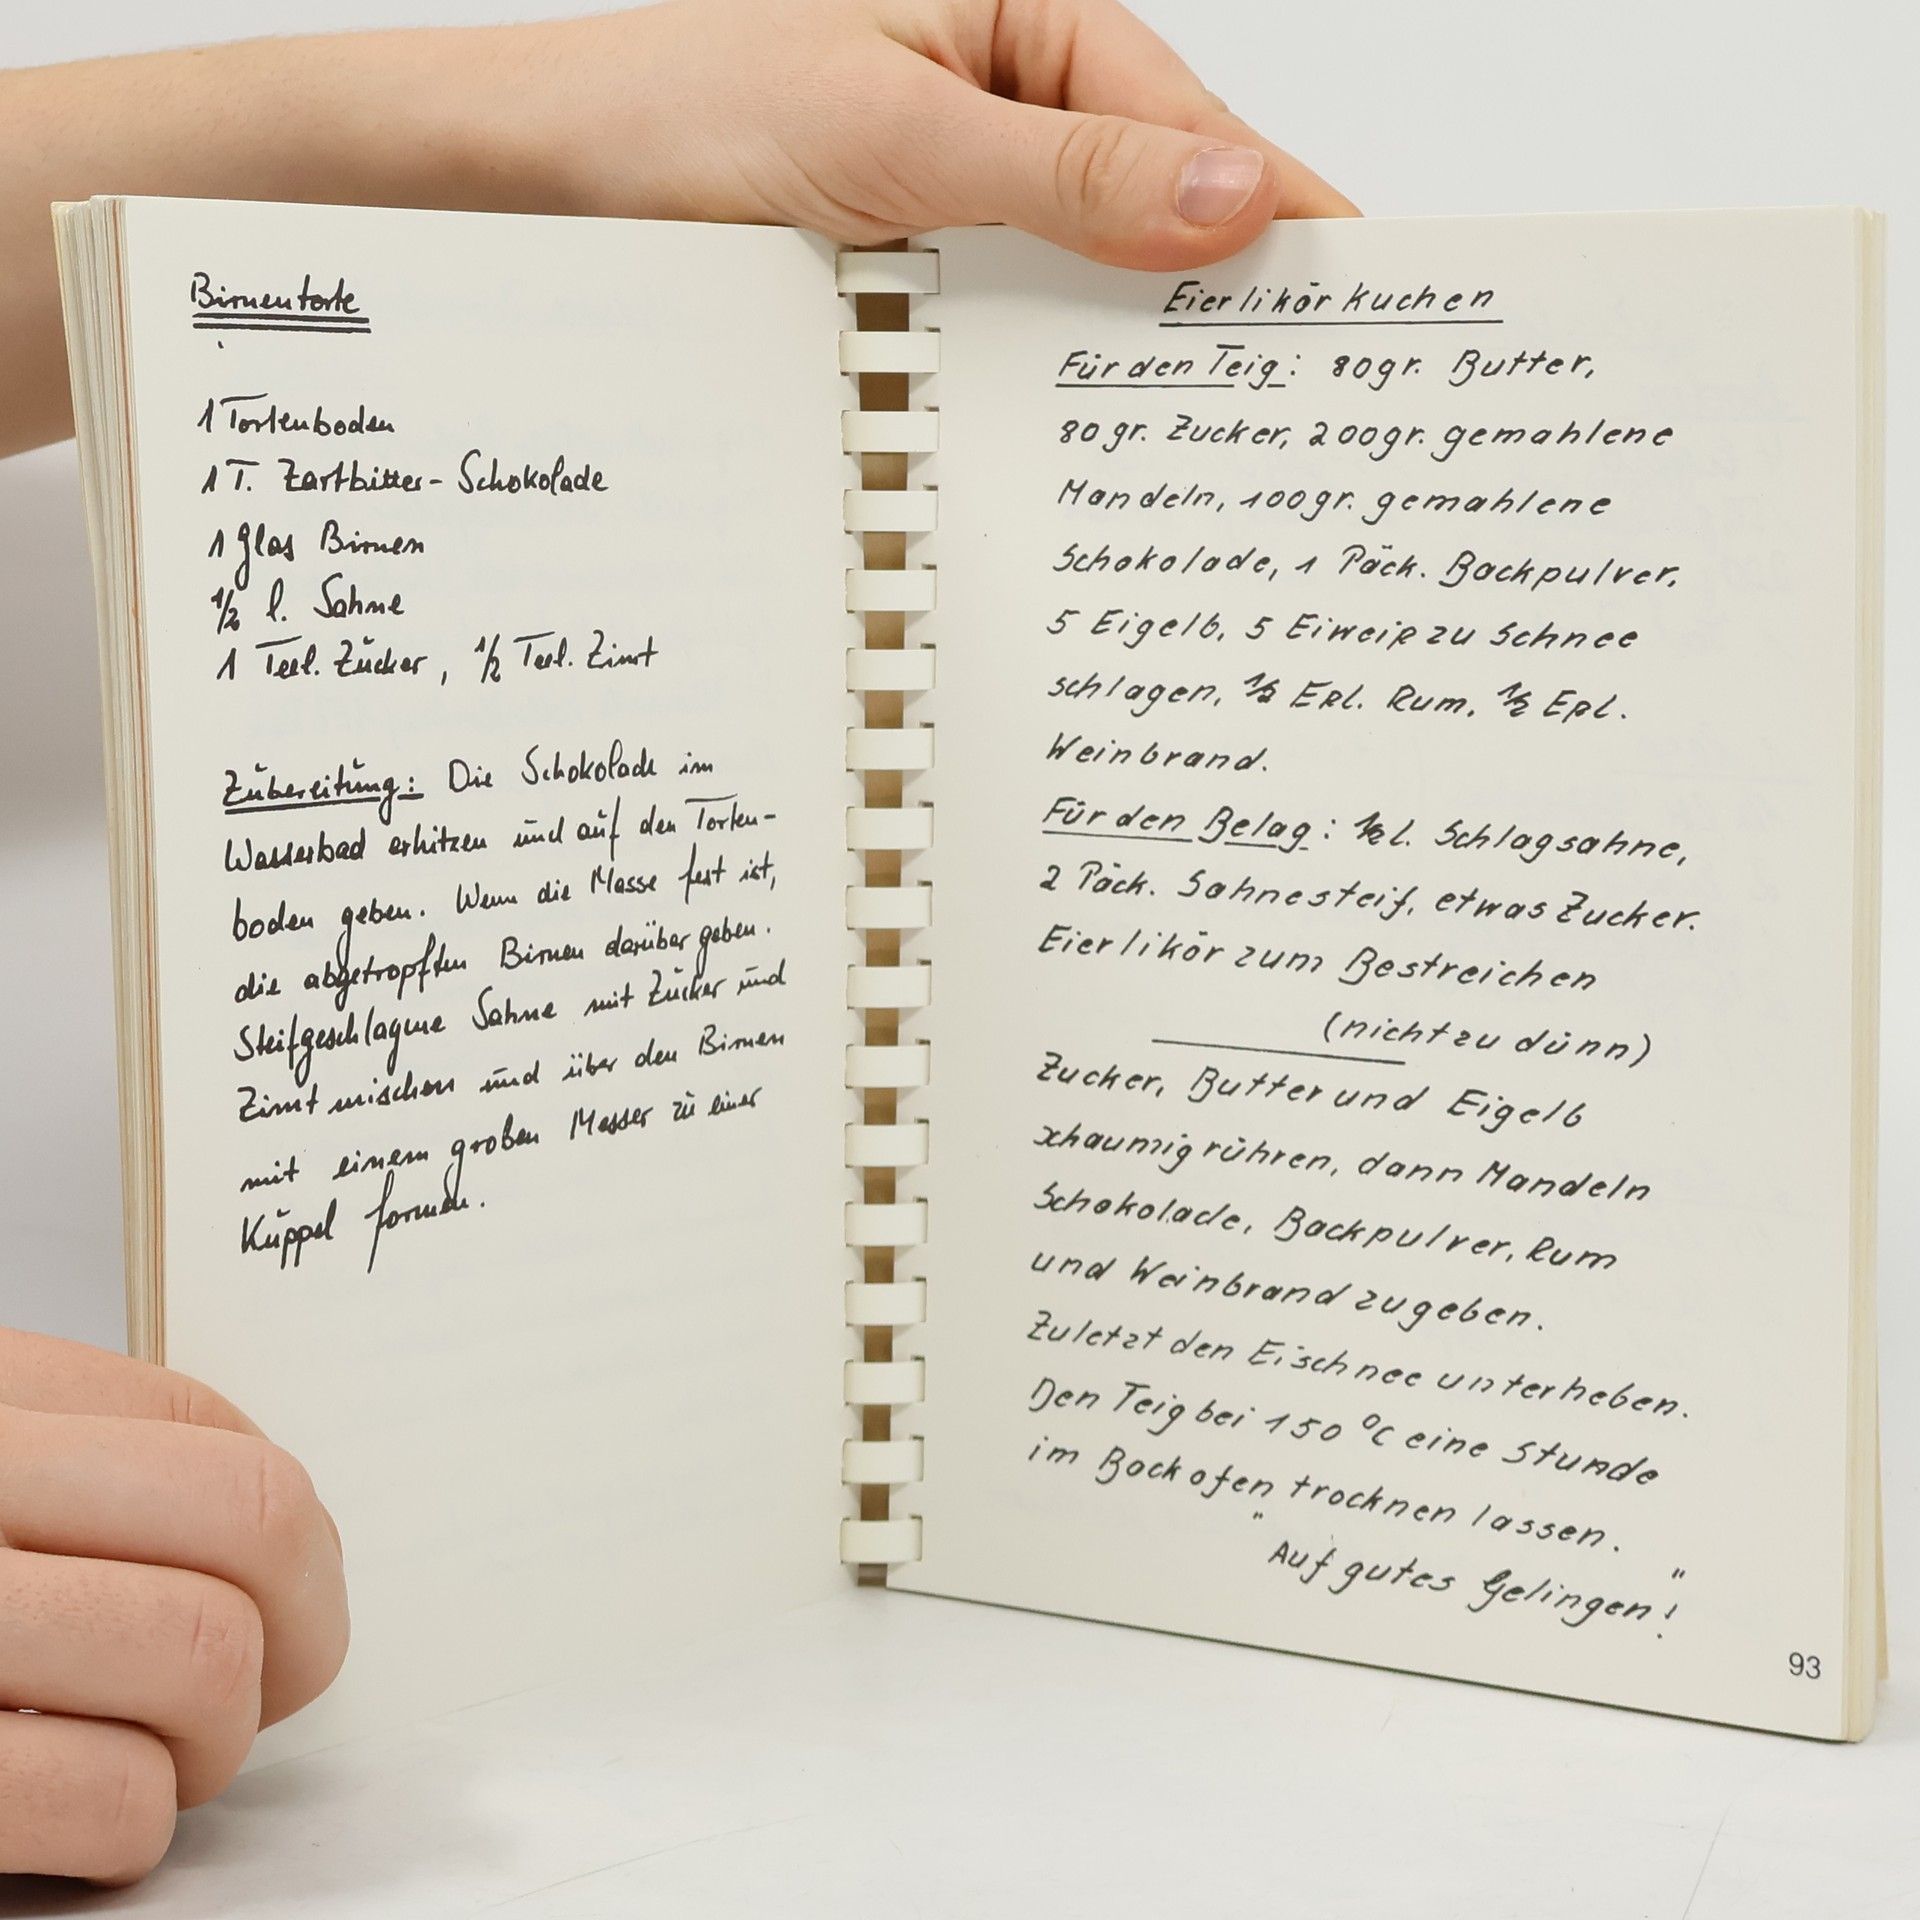 Birnentorte
1 Tortenboden
1 T. Zartbitter-Schokolade
1 Glas Birnen
1/2 l. Sahne
1 Teel. Zucker, 1/2 Teel. Zimt
Zubereitung: Die Schokolade im
Wasserbad erhitzen und auf den Torten-
boden geben. Wenn die Masse fest ist,
die abgetropften Birnen darüber geben.
Steifgeschlagene Sahne mit Zucker und
Zimt mischen und über den Birnen
mit einem großen Messer zu einer
Kuppel formen.
Eierlikör kuchen
Für den Teig: 80gr. Butter,
80gr. Zucker, 200gr. gemahlene
Mandeln, 100gr. gemahlene
Schokolade, 1 Päck. Backpulver,
5 Eigelb, 5 Eiweiß zu Schnee
schlagen, 1/2 Eßl. Rum, 1/2 Eßl.
Weinbrand.
Für den Belag: 1/2 l. Schlagsahne,
2 Päck. Sahnesteif, etwas Zucker.
Eierlikör zum Bestreichen
(nicht zu dünn)
Zucker, Butter und Eigelb
schaumig rühren, dann Mandeln
Schokolade, Backpulver, Rum
und Weinbrand zugeben.
Zuletzt den Eischnee unterheben.
Den Teig bei 150 °C eine Stunde
im Backofen trocknen lassen.
"Auf gutes Gelingen!"
93